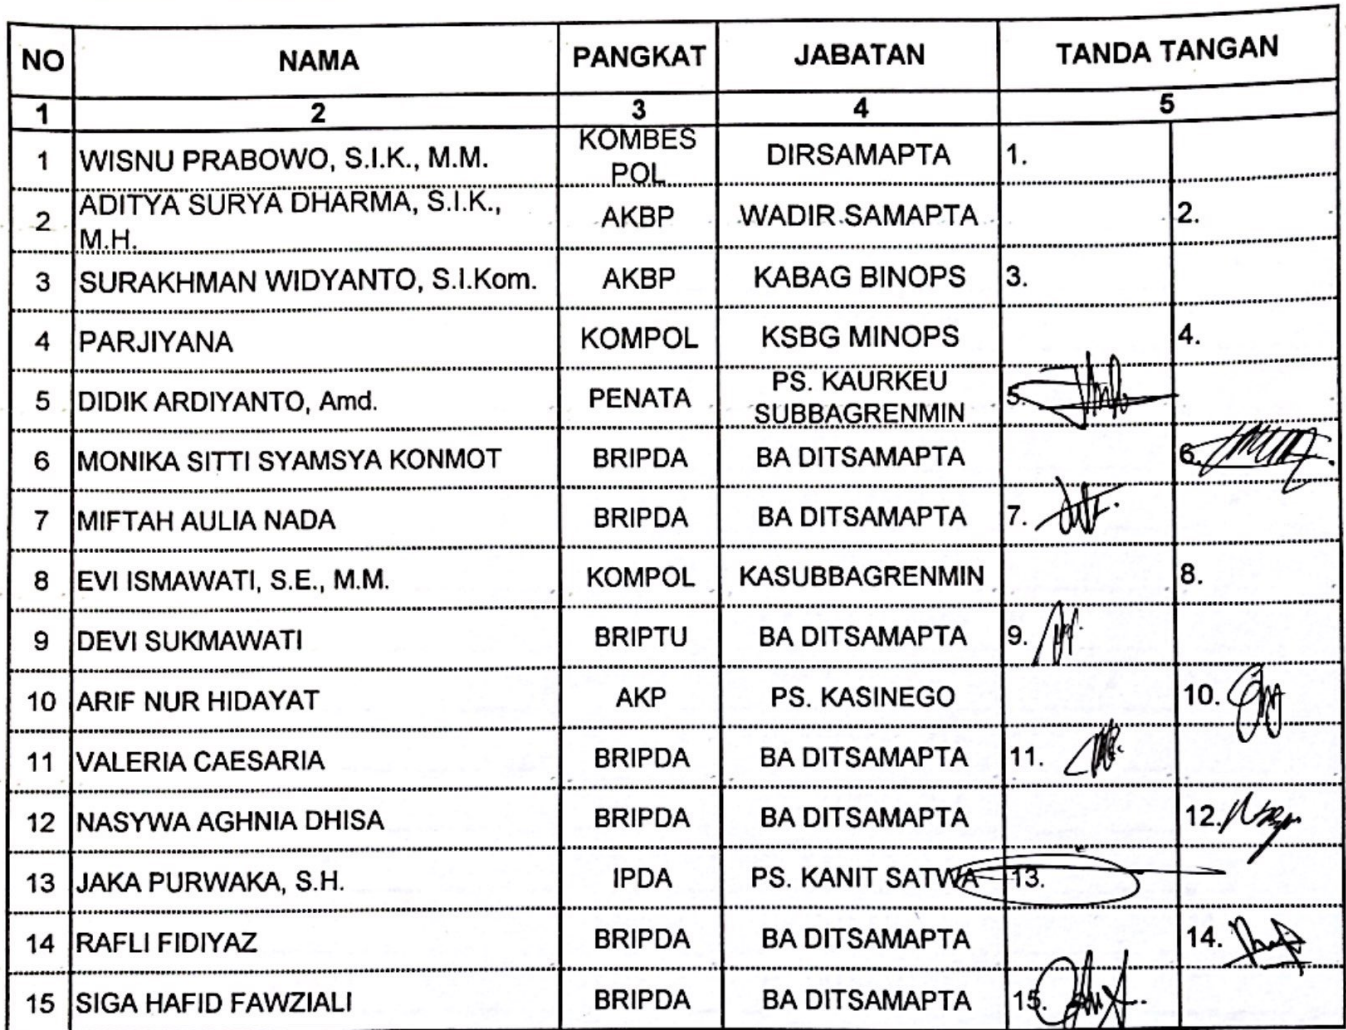 NO NAMA PANGKAT JABATAN TANDA TANGAN
1 2 3 4 5
1 WISNU PRABOWO, S.I.K., M.M. KOMBES POL DIRSAMAPTA 1.
2 ADITYA SURYA DHARMA, S.I.K., M.H. AKBP WADIR SAMAPTA 2.
3 SURAKHMAN WIDYANTO, S.I.Kom. AKBP KABAG BINOPS 3.
4 PARJIYANA KOMPOL KSBG MINOPS 4.
5 DIDIK ARDIYANTO, Amd. PENATA PS. KAURKEU SUBBAGRENMIN 5.
6 MONIKA SITTI SYAMSYA KONMOT BRIPDA BA DITSAMAPTA 6.
7 MIFTAH AULIA NADA BRIPDA BA DITSAMAPTA 7.
8 EVI ISMAWATI, S.E., M.M. KOMPOL KASUBBAGRENMIN 8.
9 DEVI SUKMAWATI BRIPTU BA DITSAMAPTA 9.
10 ARIF NUR HIDAYAT AKP PS. KASINEGO 10.
11 VALERIA CAESARIA BRIPDA BA DITSAMAPTA 11.
12 NASYWA AGHNIA DHISA BRIPDA BA DITSAMAPTA 12.
13 JAKA PURWAKA, S.H. IPDA PS. KANIT SATWA 13.
14 RAFLI FIDIYAZ BRIPDA BA DITSAMAPTA 14.
15 SIGA HAFID FAWZIALI BRIPDA BA DITSAMAPTA 15.